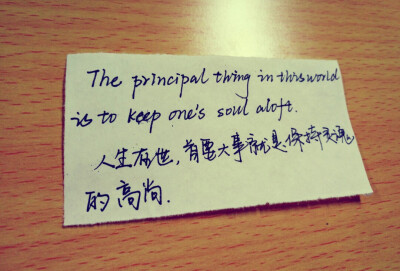 The principal thing in this world
is to keep one's soul aloft.
人生在世，首要大事就是保持灵魂
的高尚.